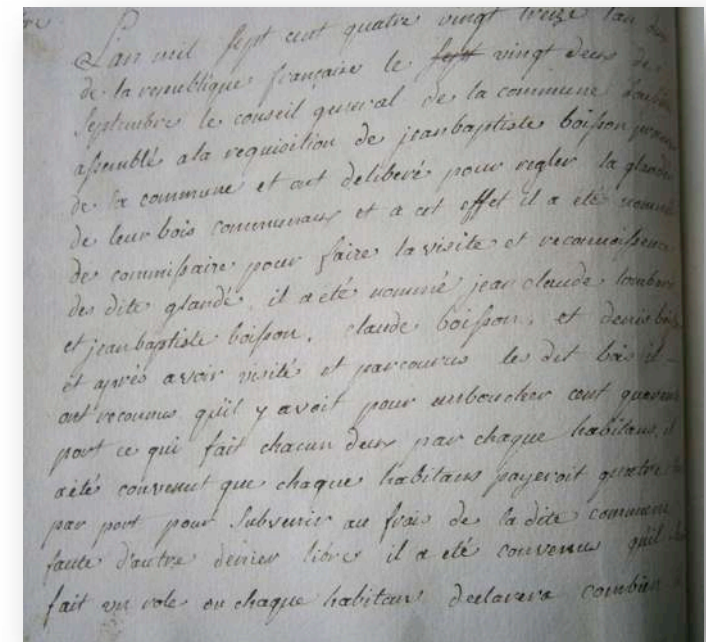 L'an mil sept cent quatre vingt treize l'an
de la republique francaise le sept vingt deux de
Septembre le conseil general de la commune
assemblé a la requisition de jean baptiste boisson
de la commune et ont deliberé pour regler la glandé
de leur bois communaux et a cet effet il a été nommé
de commissaire pour faire la visite et reconnoissence
des dite glandé. il a été nommé jean claude
et jean baptiste boisson. claude boisson. et denis
et aprés avoir visité et parcourus les dit bois il
ont reconnus quil y avoit pour cent quarente
port ce qui fait chacun deux par chaque habitans. il
aété convenut que chaque habitans payeroit quatre
par port pour Subvenir au frais de la dite commune
faute d'autre denier libre il a été convenus quil
fait un role ou chaque habitans declarera combien